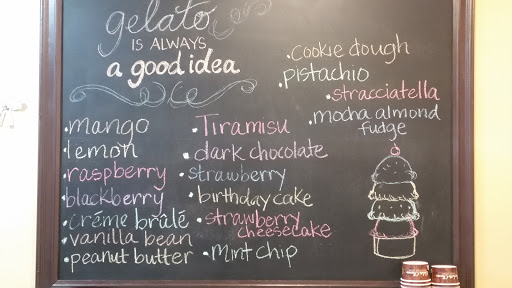 gelato
IS ALWAYS
a good idea
• mango
• lemon
• raspberry
blackberry
• créme brûlé
• vanilla bean
• peanut butter
• Tiramisu
• dark chocolate
• strawberry
• birthday cake
• strawberry
cheesecake
• Mint chip
• cookie dough
• pistachio
• stracciatella
• mocha almond
fudge